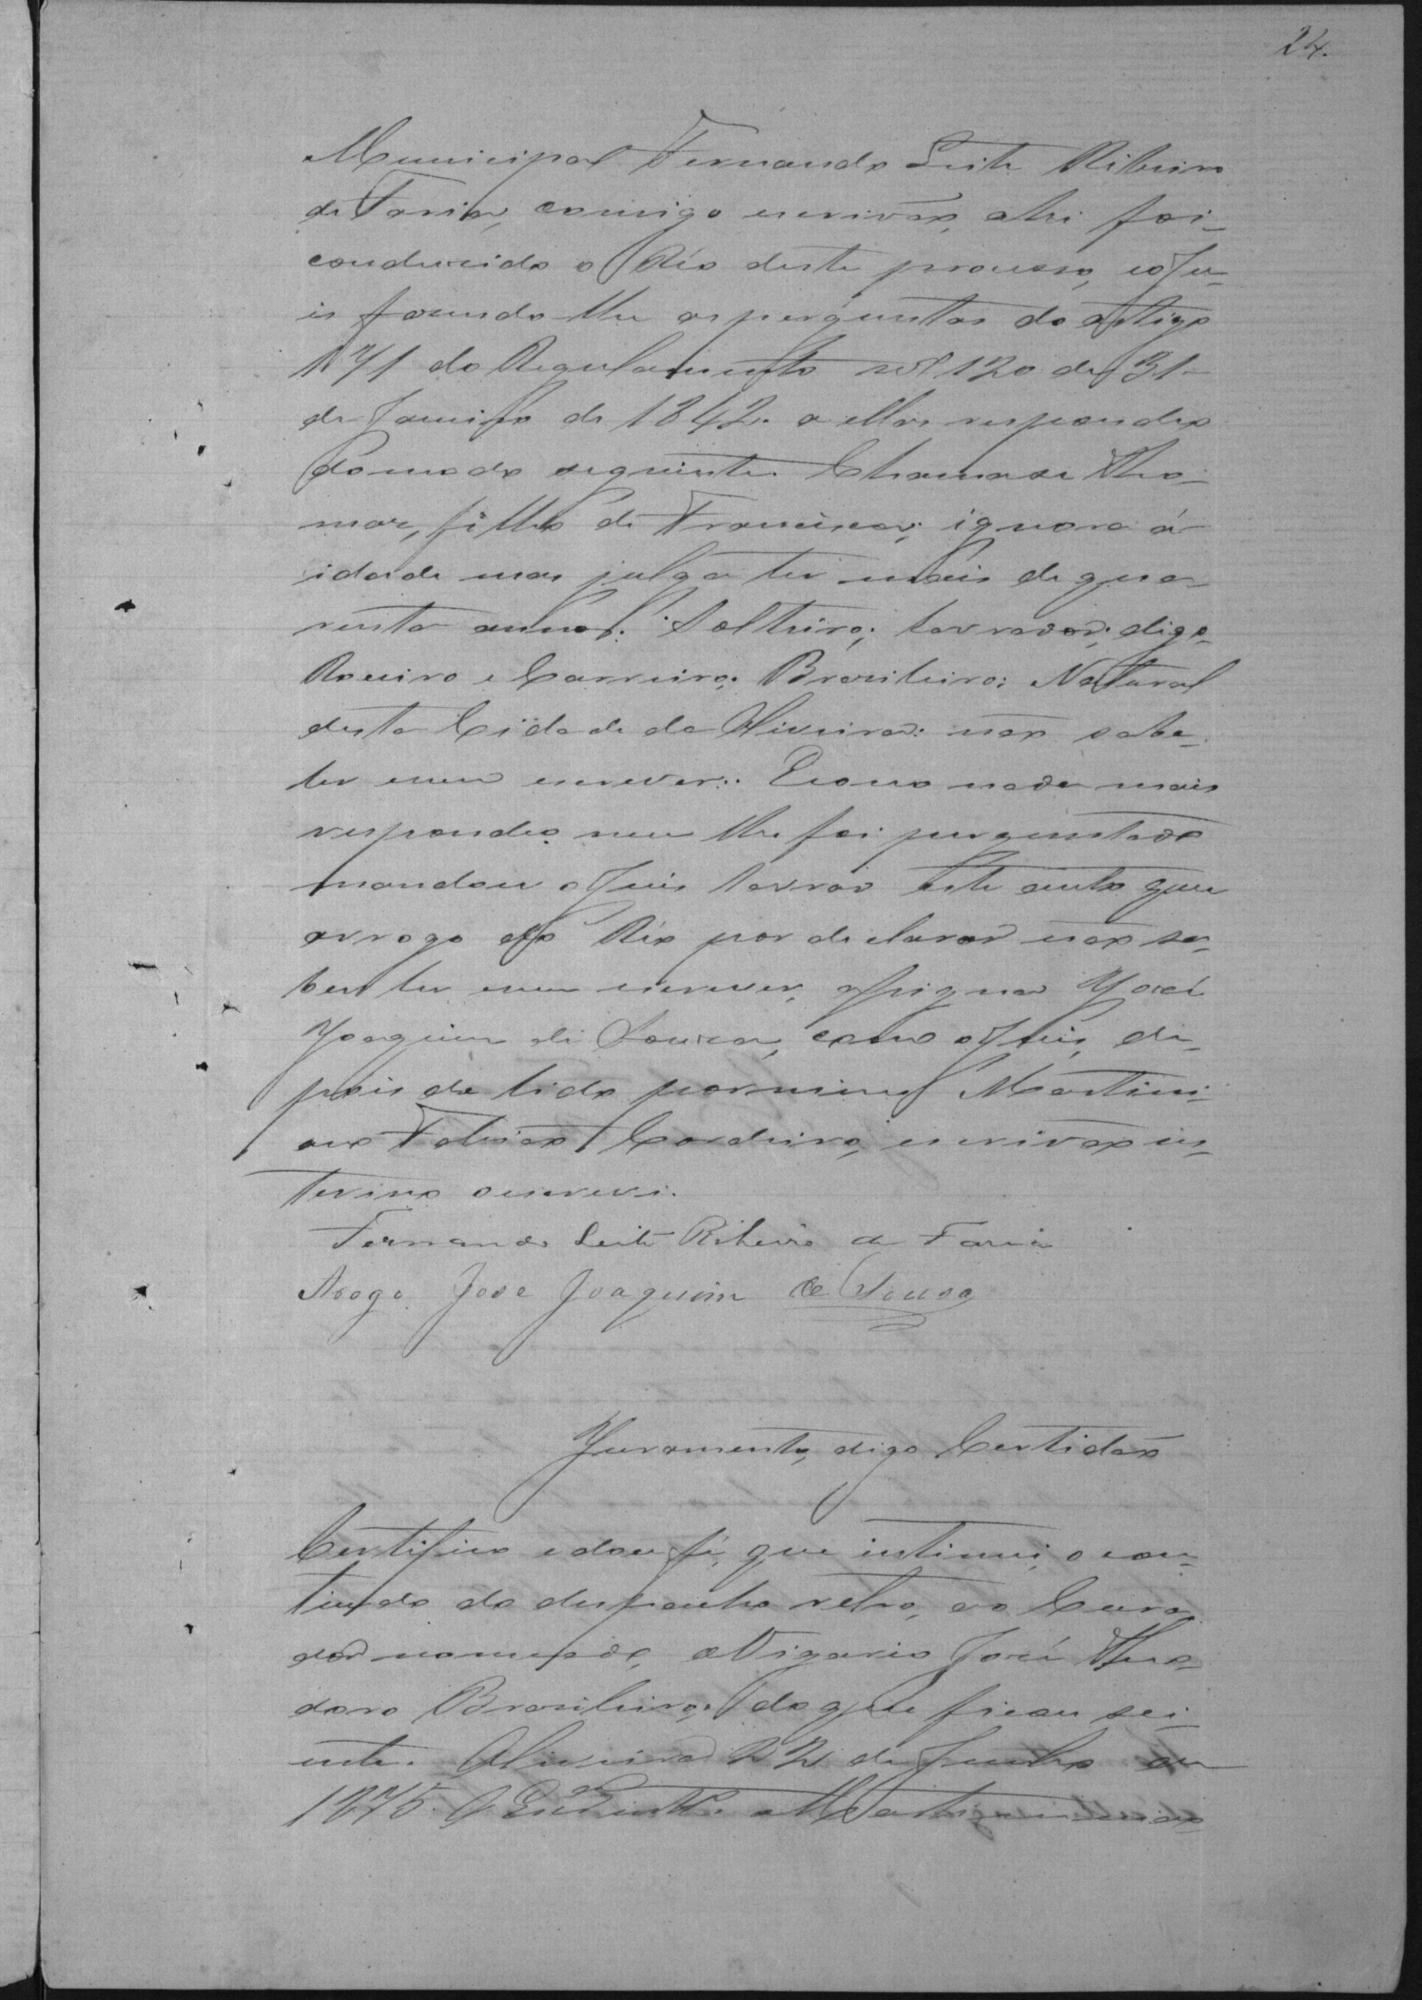 24.
Municipal Fernando Leite Ribeiro
de Faria, comigo escrivão, ahi foi
condusido o Réo deste processo, eo Ju-
is fasendo lhe as perguntas do artigo
171 do Regulamento nº 120 de 31
de Janeiro de 1842. a ellas respondeo
do modo seguinte. Chamase Tho-
mas, filho de Francisca; ignora á
idade mas julga ter mais de qua-
renta annos. Solteiro; lavrador; digo
Roceiro e Carreiro; Brasileiro; Natural
desta Cidade da Oliveira: não sabe
ler nem escrever. Ecomo nada mais
respondeo nem lhe foi perguntado
mandou o Juis lavrar este auto que
arrogo do Réo por declarar não sa-
ber ler nem escrever, assigna José
Joaquim de Sousa, como o Juis, de-
pois de lido por mim Martini-
ano Cordeiro, escrivão in-
terino o escrevi.
Fernando Leite Ribeiro de Faria
Arogo José Joaquim de Sousa
Juramento, digo Certidão
Certifico e dou fé, que intimei, o con-
tiudo do despacho retro, ao Cura-
dor nomeado, o Vigario José Theo-
doro Brasileiro; do que ficou sci-
ente. Oliveira 22 de Junho de
1875. O